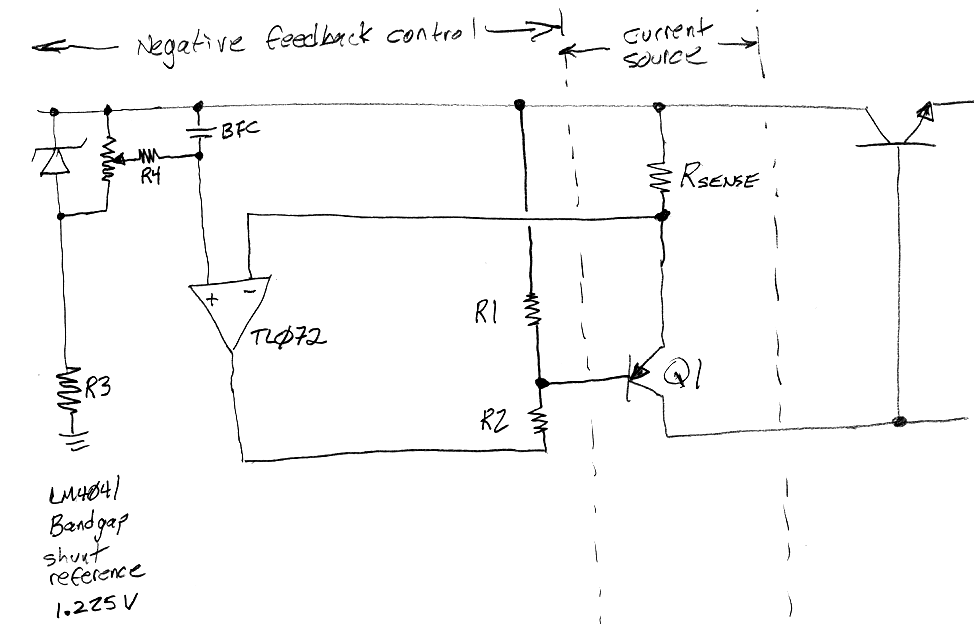 Negative feedback control
current
source
BFC
R4
RSENSE
+ -
TLØ72
R1
Q1
R3
R2
LM4Ø41
Bandgap
shunt
reference
1.225V